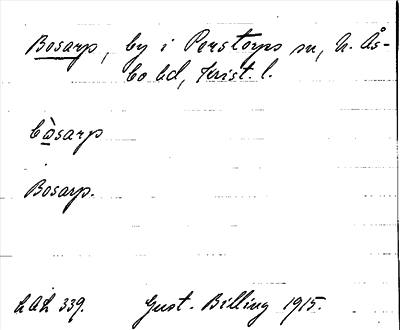 Bosarp, by i Perstorps sn, N. Ås-
bo hd, Krist. l.
bòsarp
Bosarp.
LAL 339. Gust. Billing 1915.